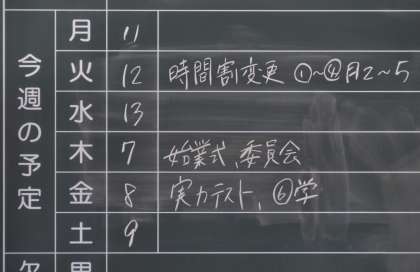 今週の予定
月 11
火 12 時間割変更 ①~④月2~5
水 13
木 7 始業式、委員会
金 8 実力テスト、⑥学
土 9